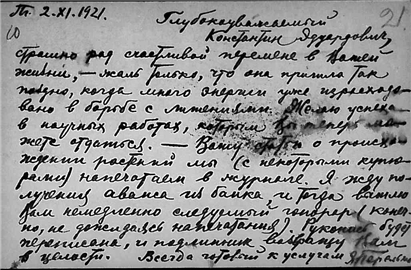 Пт. 2.XI.1921. Глубокоуважаемый
Константин Эдуардович,
страшно рад счастливой перемене в Вашей
жизни, — жаль только, что она пришла так
поздно, когда много энергии уже израсходо-
вано в борьбе с лишениями. Желаю успеха
в научных работах, которым Вы теперь мо-
жете отдаться. — Вашу статью о происхо-
ждении растений мы (с некоторыми купю-
рами) напечатаем в журнале. Я жду по-
лучения аванса из банка и тогда вышлю
Вам немедленно следуемый гонорар (конеч-
но, не дожидаясь напечатания). Рукопись будет
переписана, и подлинник возвращу Вам
в целости. Всегда готовый к услугам Я. Перельман